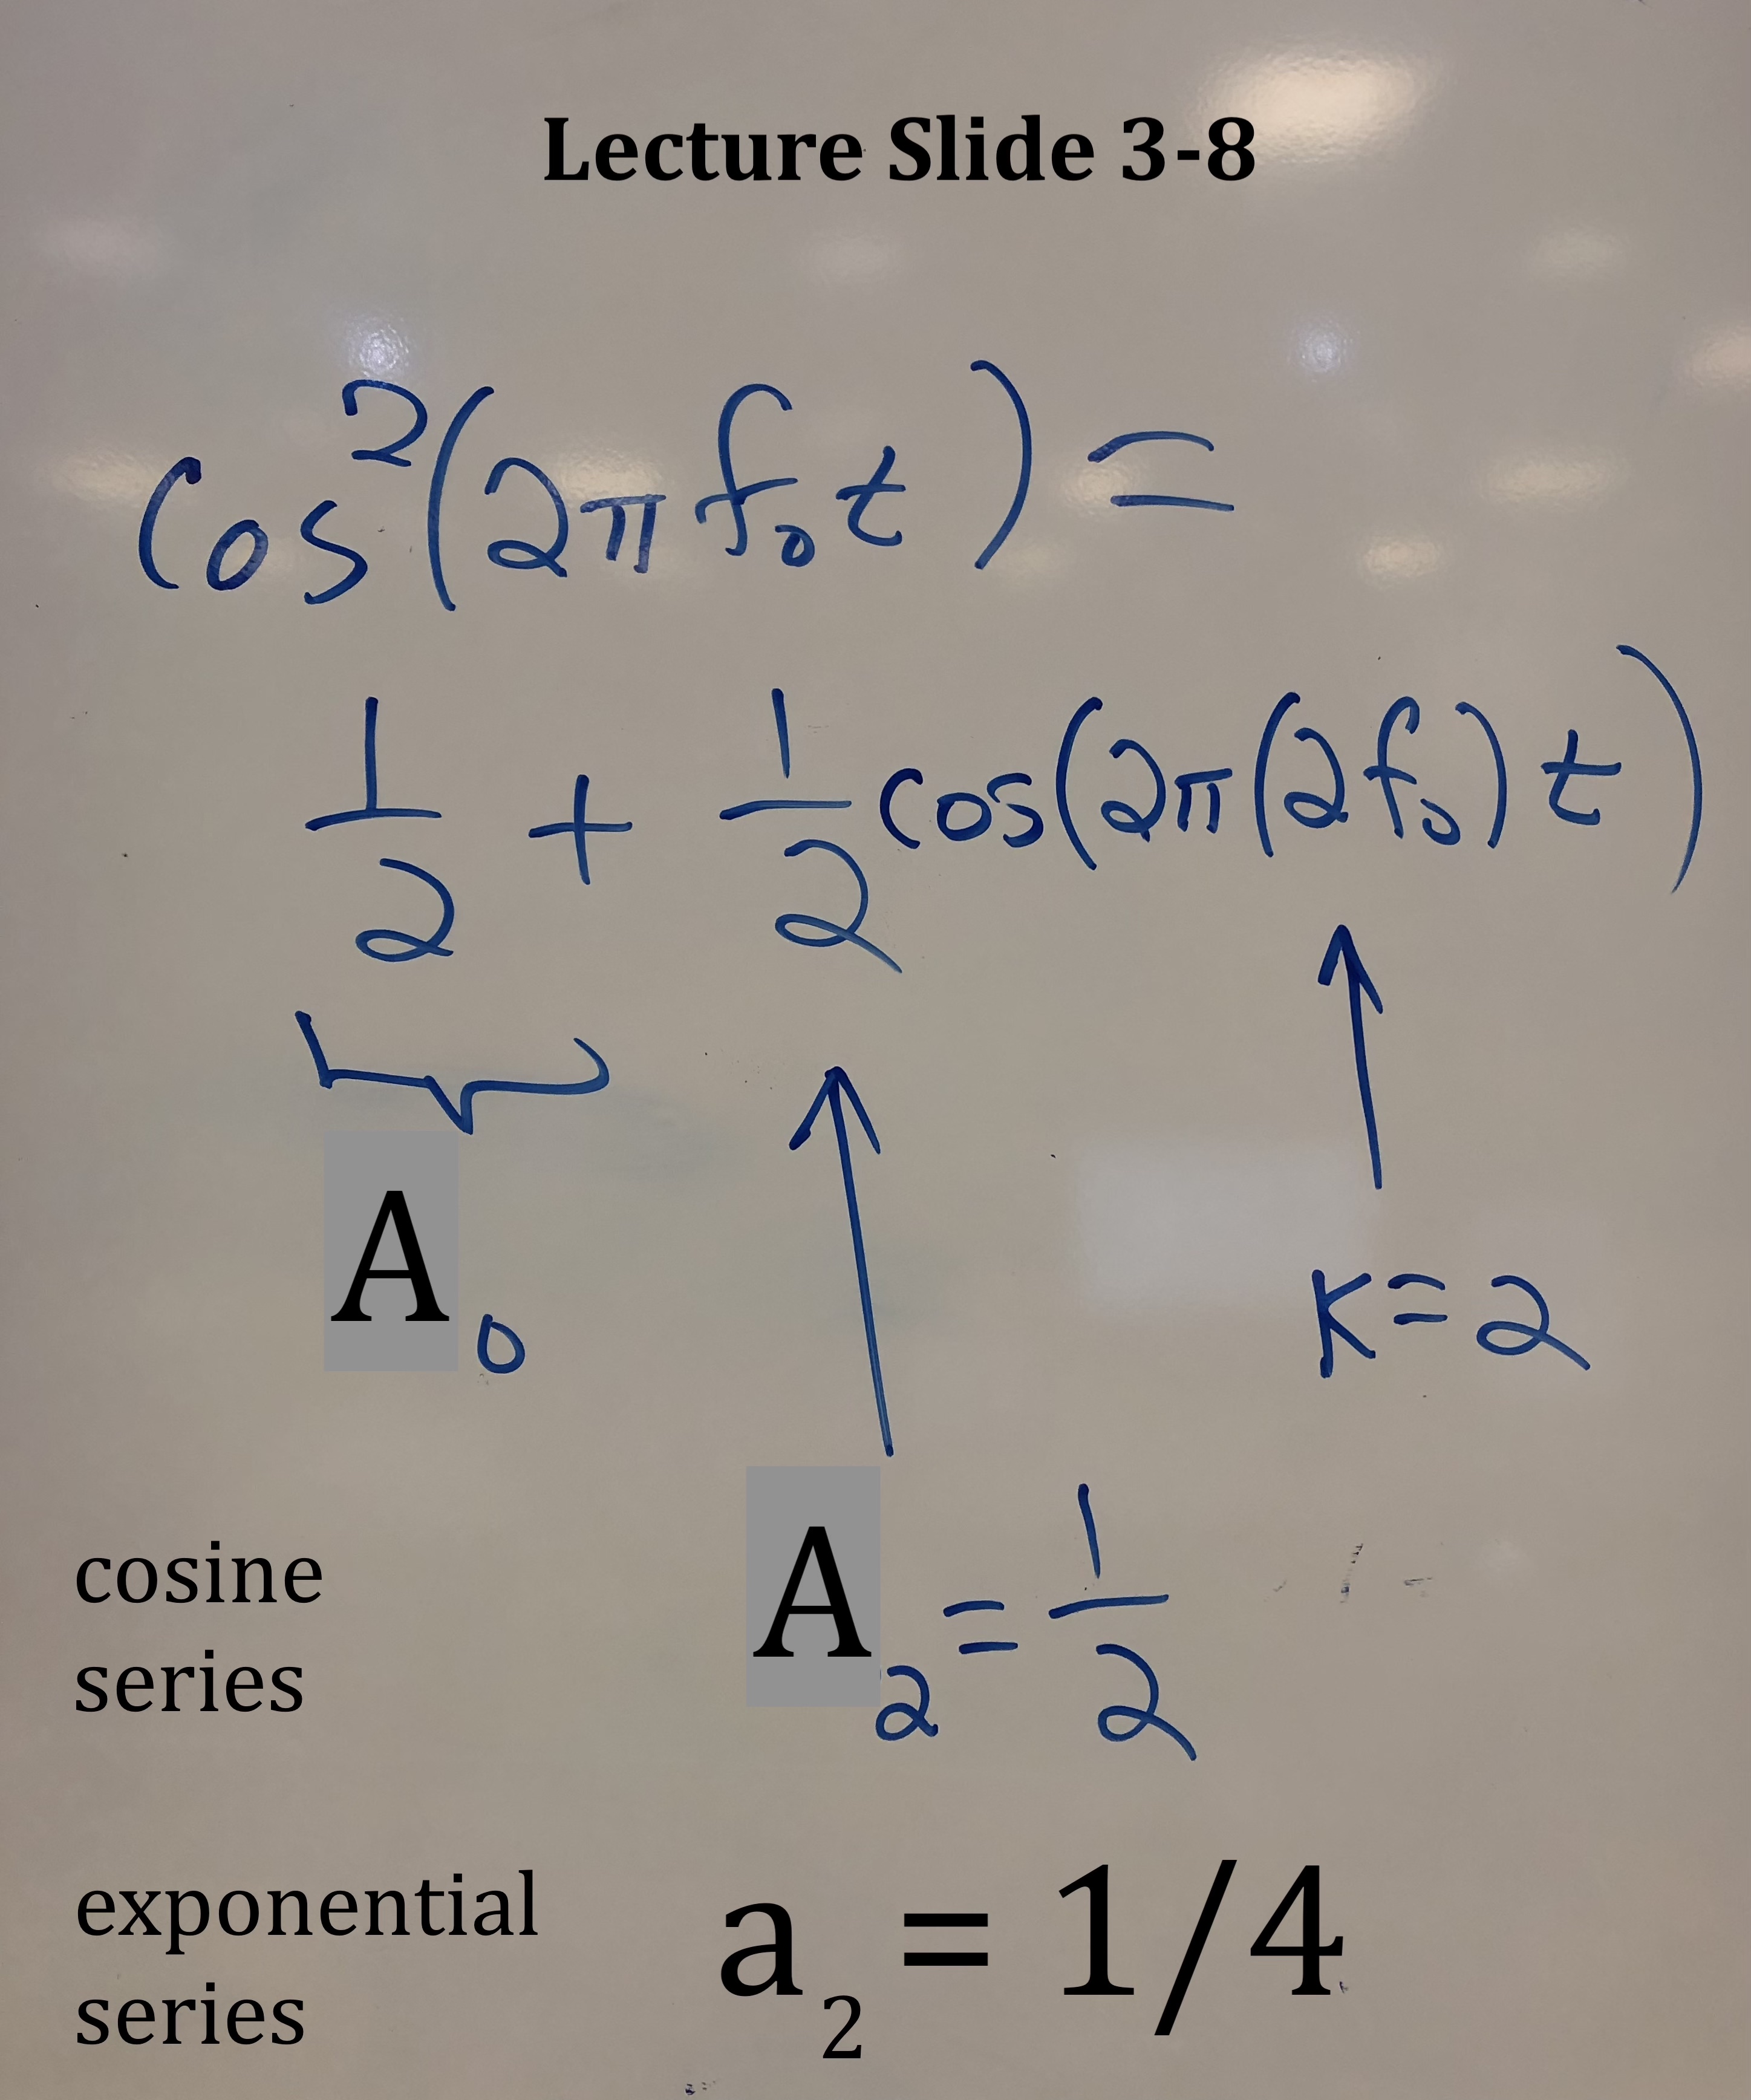 Lecture Slide 3-8
cos²(2πf₀t) =
1/2 + 1/2 cos(2π(2f₀)t)
A₀
K = 2
cosine
series
A₂ = 1/2
exponential
series
a₂ = 1/4